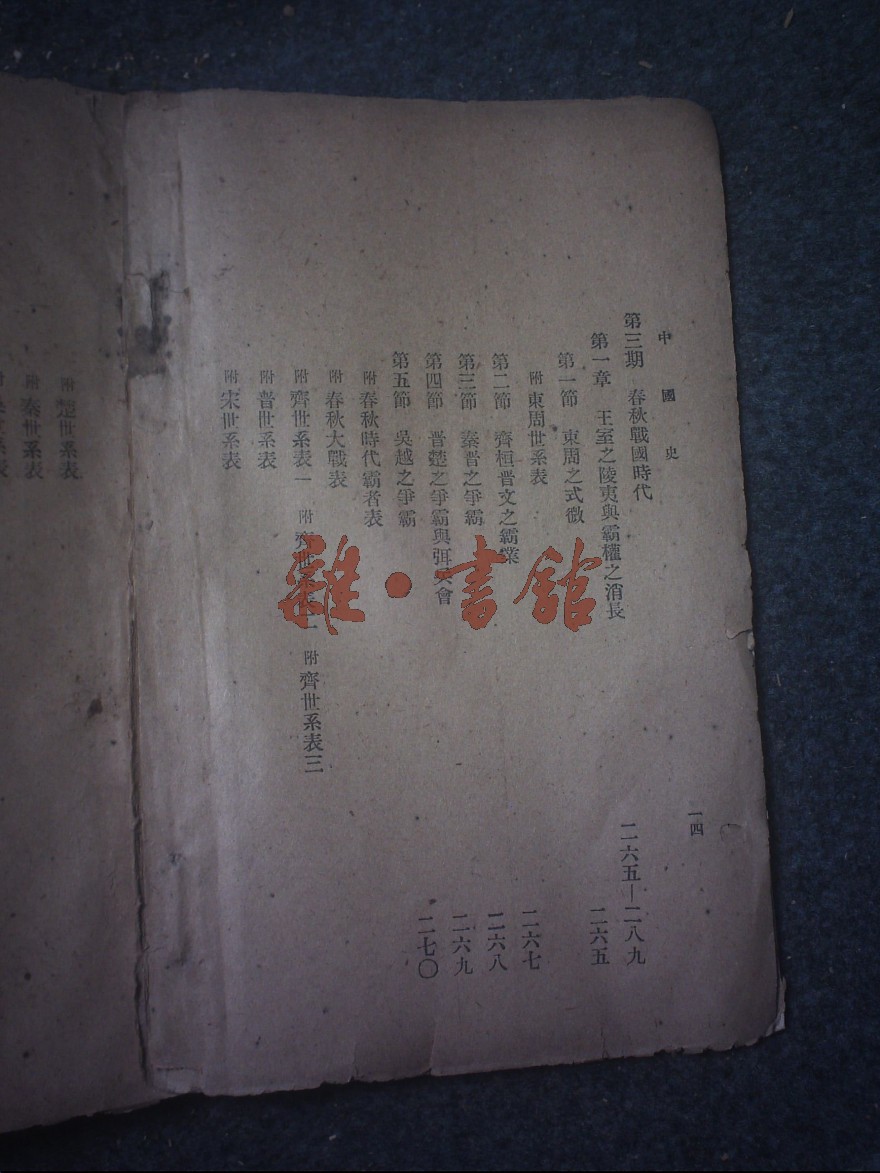 中國史
一四
第三期 春秋戰國時代
第一章 王室之陵夷與霸權之消長 二六五—二八九
第一節 東周之式微 二六五
附 東周世系表
第二節 齊桓晋文之霸業 二六七
第三節 秦晋之爭霸 二六八
第四節 晋楚之爭霸與弭兵會 二六九
第五節 吳越之爭霸 二七〇
附 春秋時代霸者表
附 春秋大戰表
附 齊世系表一 附 齊世系表二 附 齊世系表三
附 晋世系表
附 宋世系表
附 楚世系表
附 秦世系表
雜·書館